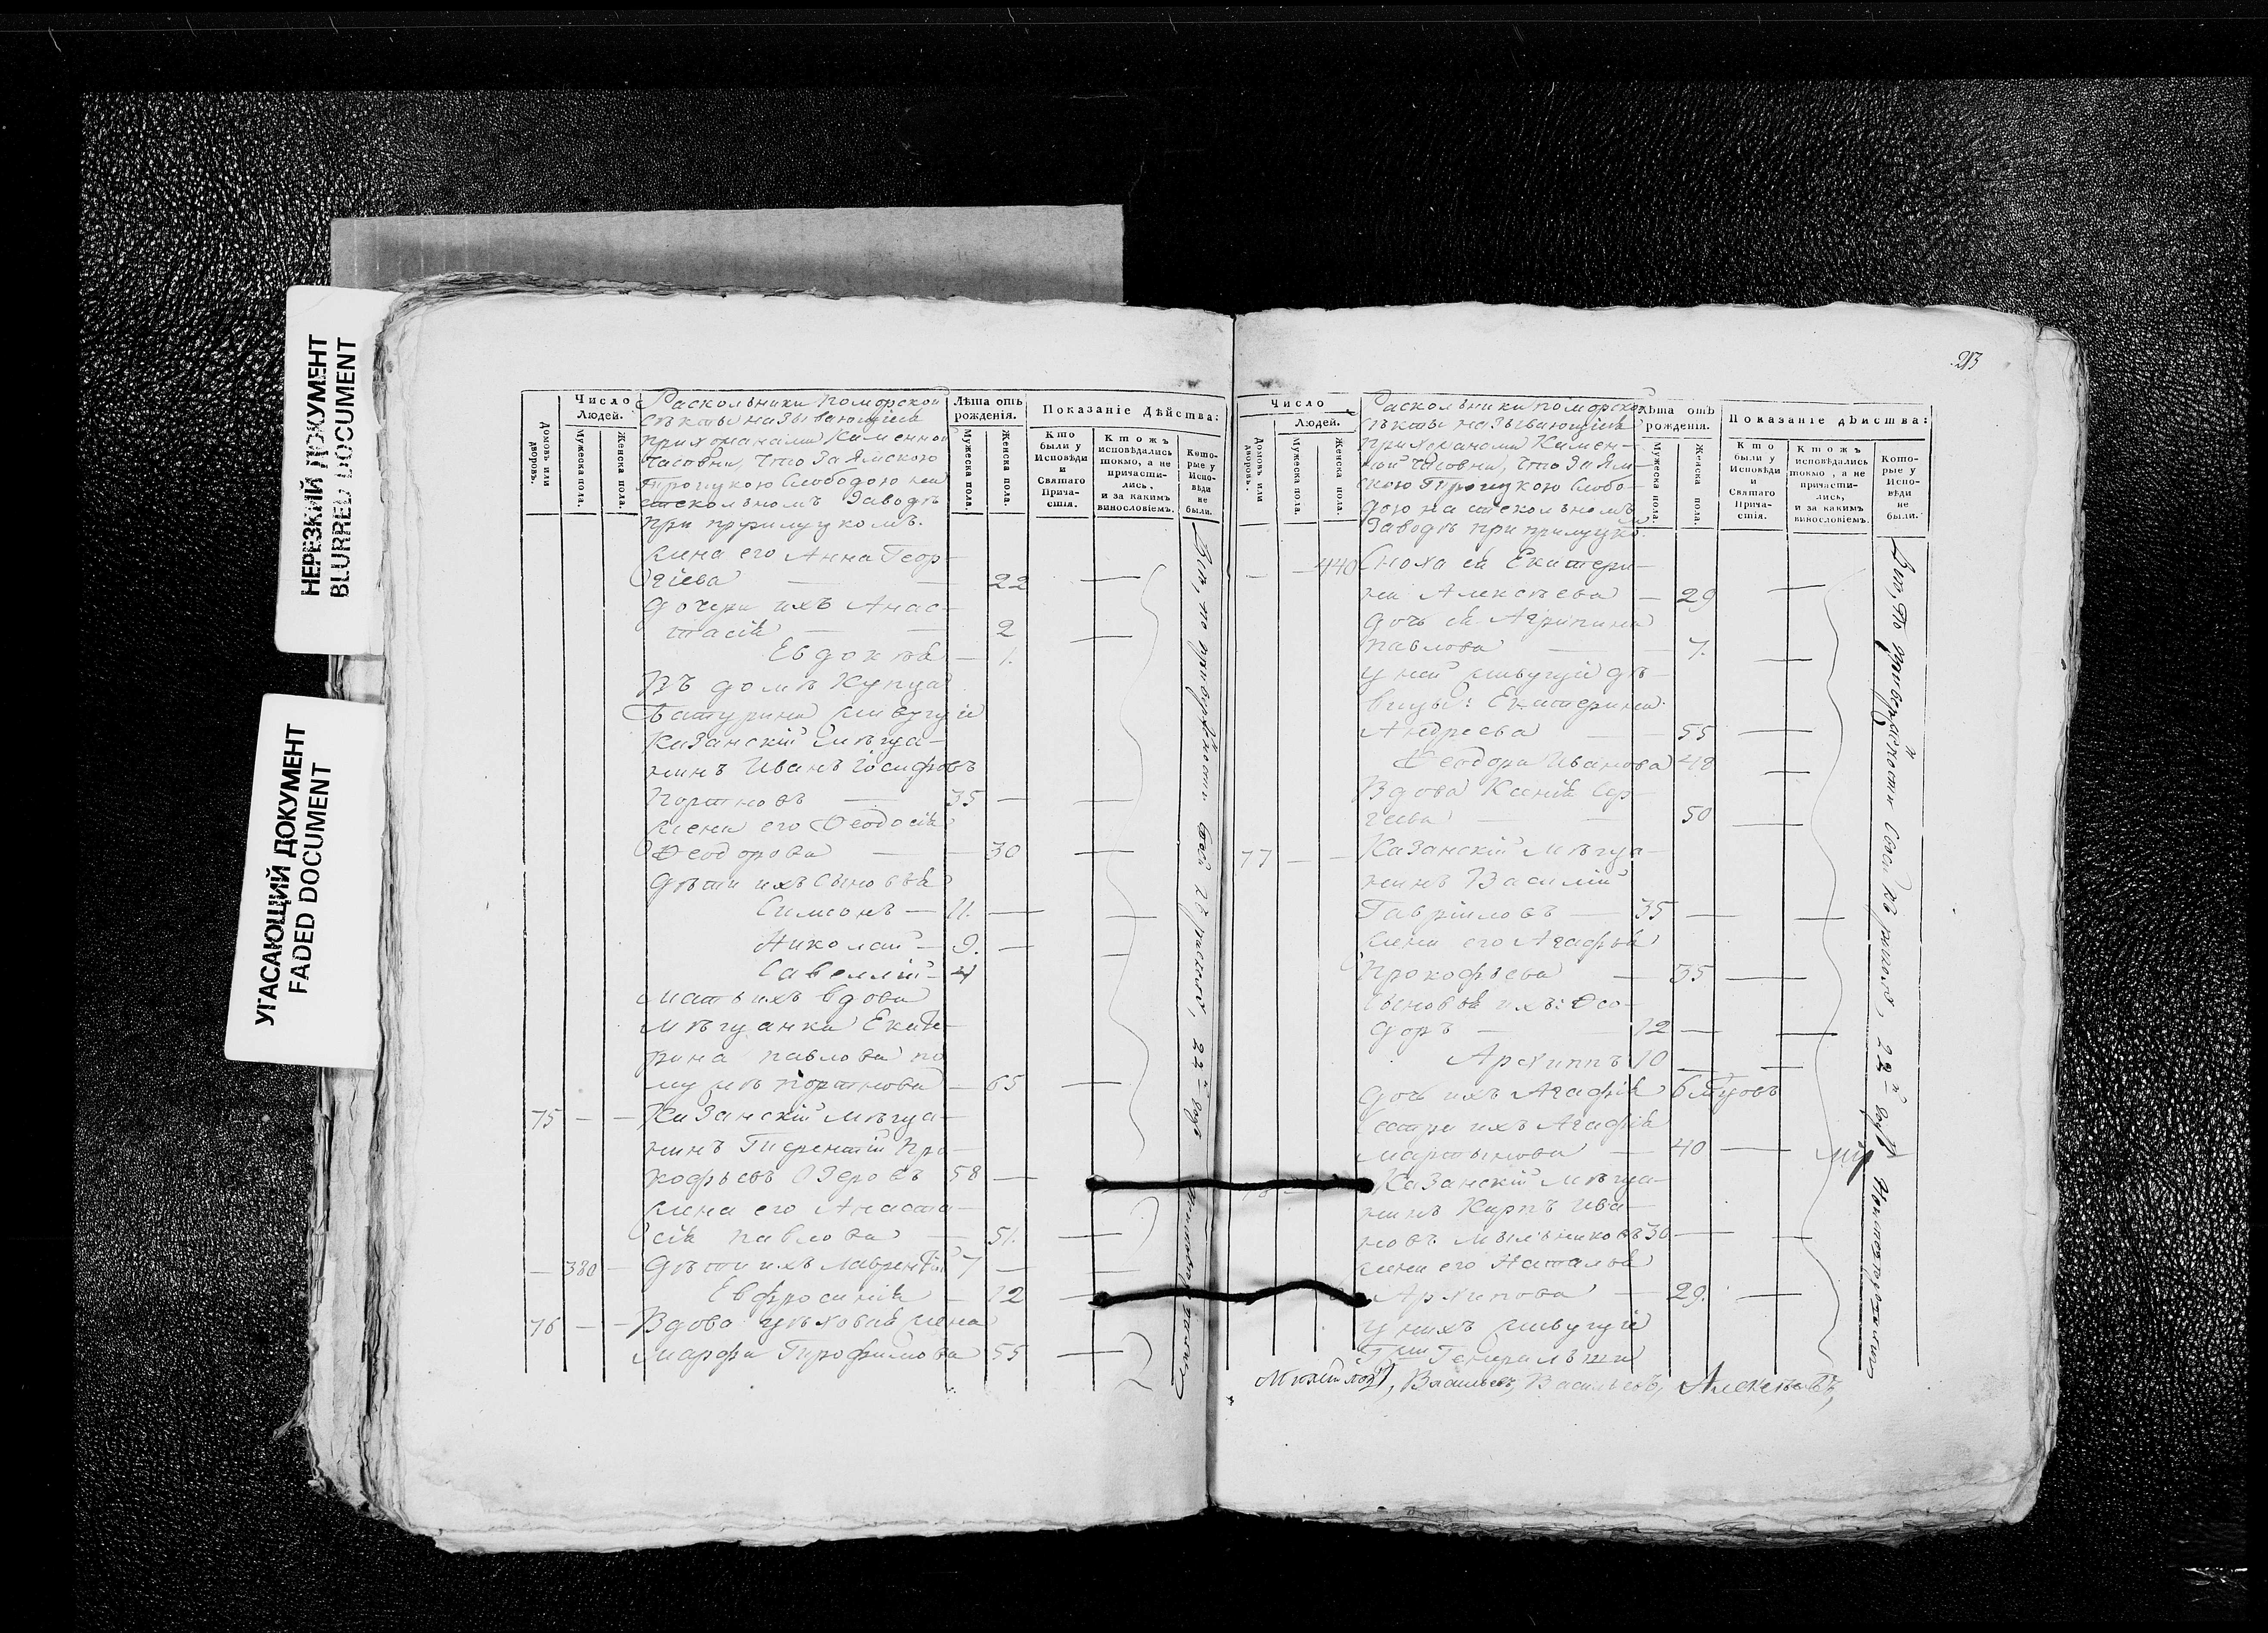 НЕРЕЗКИЙ ДОКУМЕНТ
BLURRED DOCUMENT
УГАСАЮЩИЙ ДОКУМЕНТ
FADED DOCUMENT
Число
Людей.
Домовъ или дворовъ.
Мужеска пола.
Женска пола.
Раскольники поморской
секты называющіеся
прихожанами Каменной
Часовни, что за Ямскою
Троицкою Слободою на
стекольномъ Заводѣ
при прилуцкомъ.
Лѣта отъ рожденія.
Мужеска пола.
Женска пола.
Показаніе Дѣйства:
Кто были у Исповѣди и Святаго Причастія.
Ктожъ исповѣдались токмо, а не причастились, и за какимъ винословіемъ.
Которые у Исповѣди не были.
жена его Анна Геор-
гіева — 22
дочери ихъ Анас-
тасія — 2
Евдокія — 1.
Въ домѣ Купца
Батурина живущіе
Казанскій мѣща-
нинъ Иванъ Іосифовъ
Портновъ — 35 —
жена его Ѳеодосія
Ѳеодорова — 30
дѣти ихъ сыновья
Симеонъ — 11. —
Николай — 9. —
Савелий — 4
мать ихъ вдова
мѣщанка Екате-
рина павлова по
мужѣ портнова — 65
75 — — Казанскій мѣща-
нинъ Терентій Про-
кофьевъ Озеровъ 58 —
жена его Анаста-
сія павлова — 51.
— 380 — дѣти ихъ Лаврентій 7 —
Евфросинія — 12
76 — — Вдова цѣховая жена
Марфа Трофимова 55
213
Число
Людей.
Домовъ или дворовъ.
Мужеска пола.
Женска пола.
Раскольники поморской
секты называющіеся
прихожанами Камен-
ной Часовни, что за Ям-
скою Троицкою Слобо-
дою на стекольномъ
Заводѣ при прилуцко
Лѣта отъ рожденія.
Мужеска пола.
Женска пола.
Показаніе дѣйства:
Кто были у Исповѣди и Святаго Причастія.
Ктожъ исповѣдались токмо, а не причастились, и за какимъ винословіемъ.
Которые у Исповѣди не были.
— — 440 Сноха ея Екатери-
на Алексѣева — 29
дочь ея Агрипина
павлова — 7.
у ней живущія дѣ-
вицы: Екатерина
Андреева — 55
Ѳеодора Иванова 48
Вдова Ксенія Сер-
геева — 50
77 — — Казанскій мѣща-
нинъ Василій
Гавріиловъ — 35 —
жена его Агафья
Прокофьева — 35
сыновья ихъ: Ѳео-
доръ — 12 —
Архиппъ 10
дочь ихъ Агафія 6 мѣсцовъ
Сестра ихъ Агафія
Мартынова — 40
Казанскій мѣща-
нинъ Карпъ Ива-
новъ Мыльниковъ 30 —
жена его Наталья
Архипова — 29.
у нихъ живущій
Гжи Генеральши